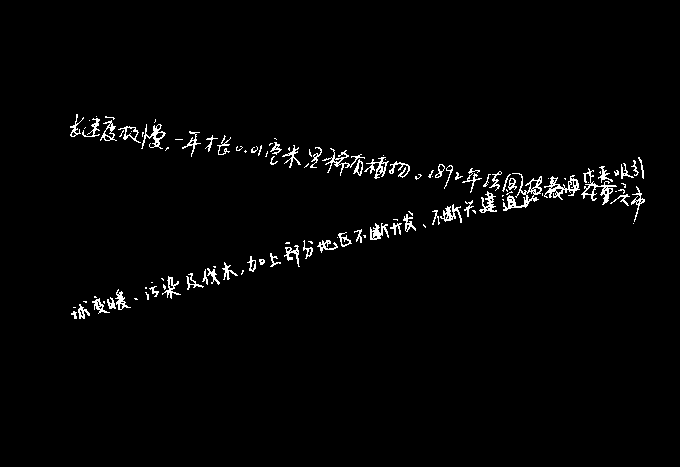 长速度极慢,一年才长0.01厘米是稀有植物。1892年法国传教酒庄来吸引
球变暖、污染及伐木,加上部分地区不断开发、不断兴建道路在重庆市